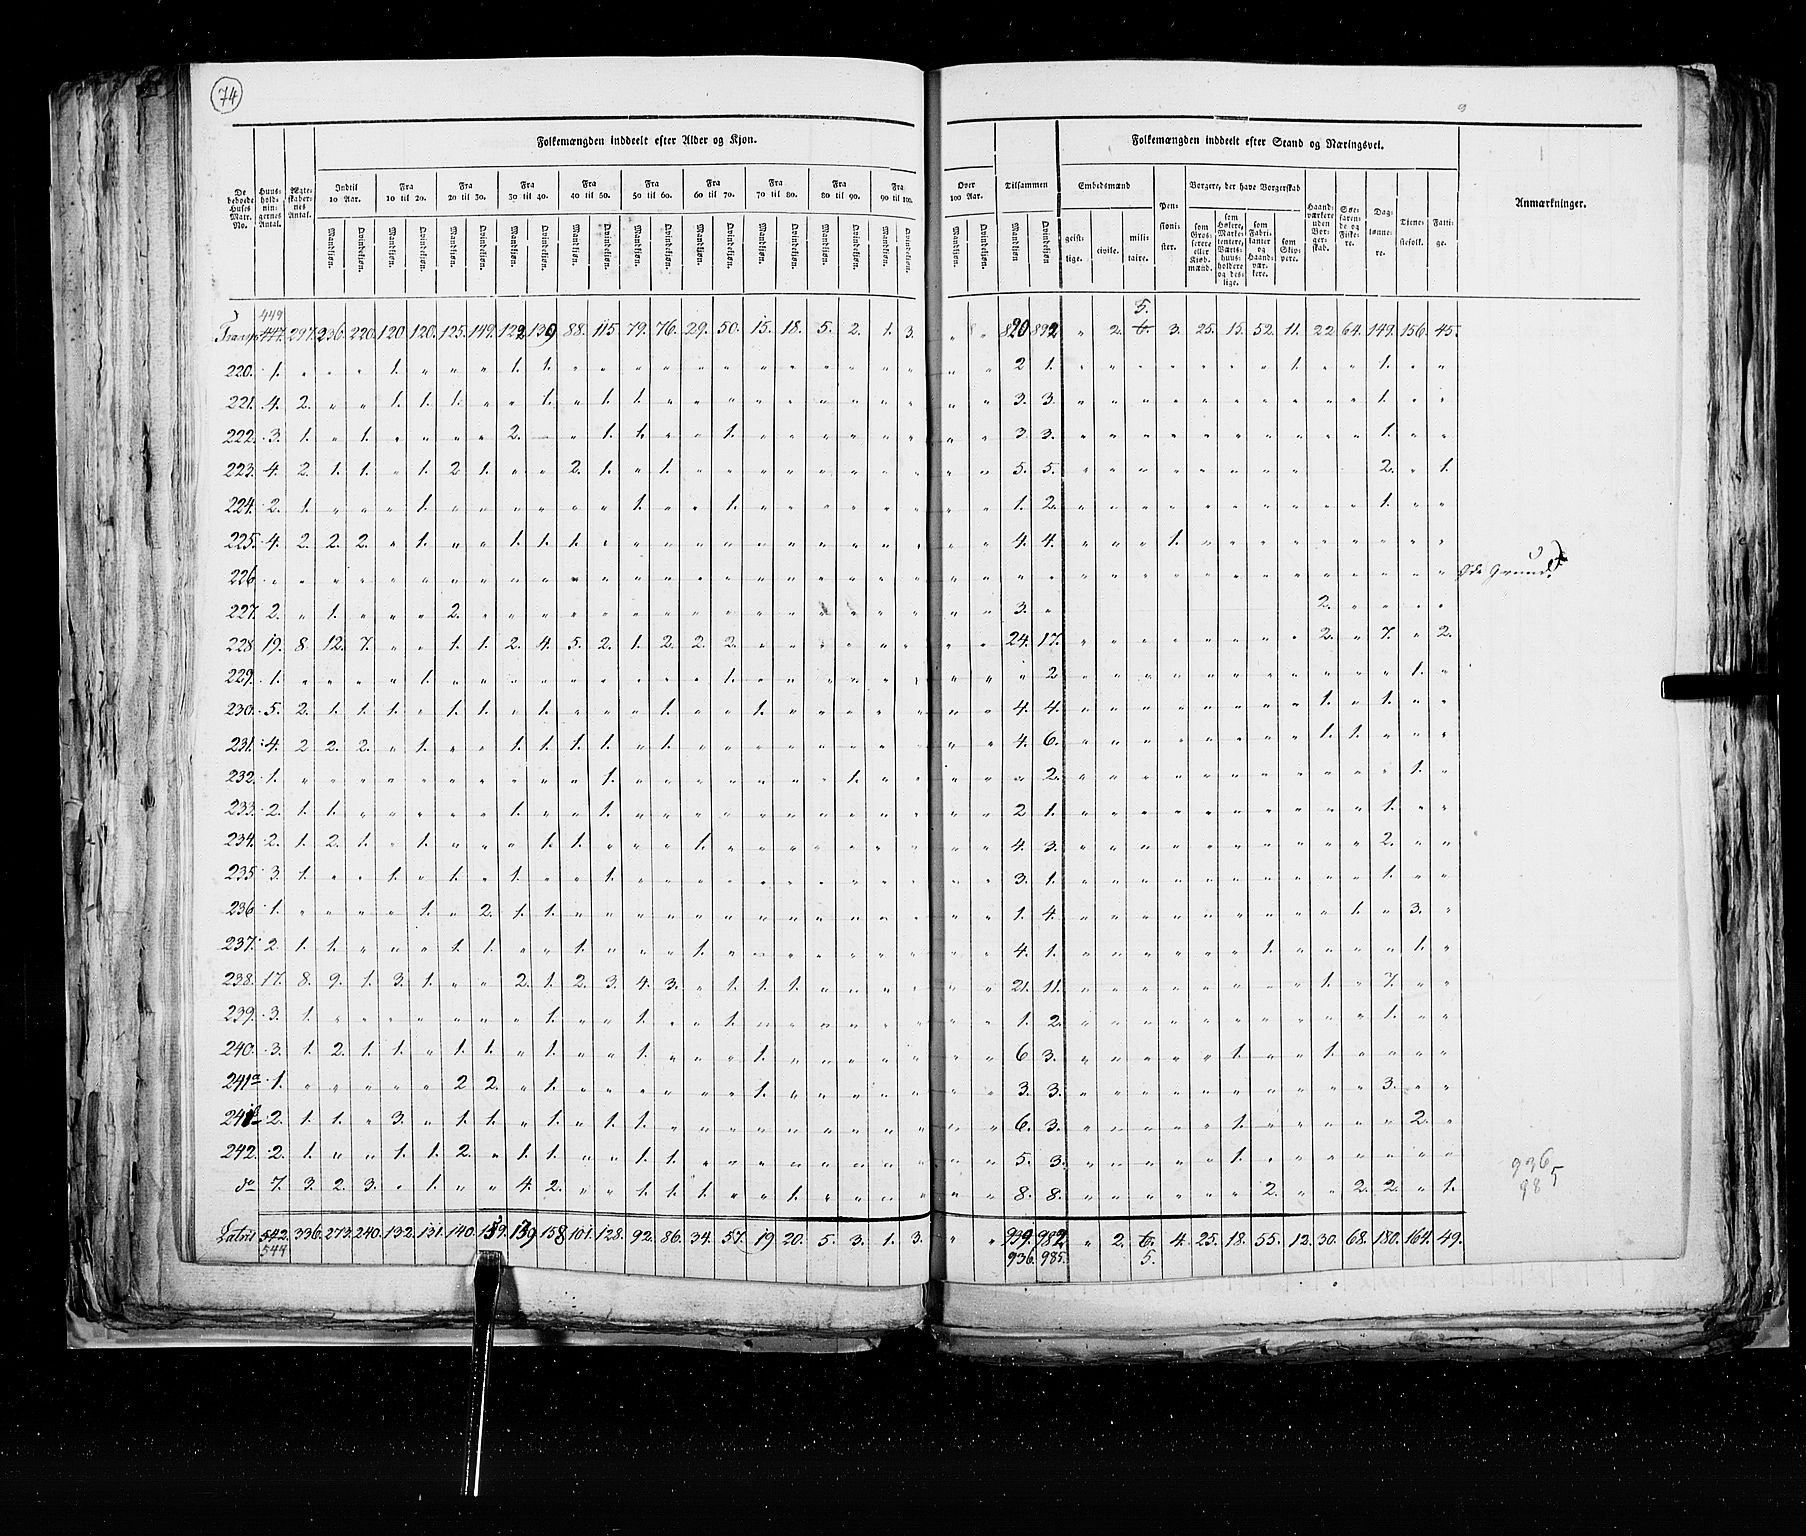 74
Folkemængden inddeelt efter Alder og Kjøn.
Folkemængden inddeelt efter Stand og Næringsvei.
De beboede Huses Matr. No.
Huus-holdnin-gernes Antal.
Ægte-skaber-nes Antal.
Indtil 10 Aar.
Fra 10 til 20.
Fra 20 til 30.
Fra 30 til 40.
Fra 40 til 50.
Fra 50 til 60.
Fra 60 til 70.
Fra 70 til 80.
Fra 80 til 90.
Fra 90 til 100.
Over 100 Aar.
Tilsammen
Embedsmænd
Pensionister.
Borgere, der have Borgerskab
Haandværkere uden Borgerskab.
Søefarende og Fiskere.
Daglønnere.
Tienestefolk.
Fattige.
Anmærkninger.
Mandkjøn. Qvindekjøn.
geistlige. civile. militaire.
som Grosserere eller Kjøbmænd.
som Høkere, Marketentere, Værtshuusholdere og deslige.
som Fabrikanter og Haandværkere.
som Skippere.
449 5.
Transp. 447. 297. 236. 220. 120. 120. 125. 149. 129. 130. 88. 115. 79. 76. 29. 50. 15. 18. 5. 2. 1. 3. „ „ 820 892 „ 2. 6. 3. 25. 15. 52. 11. 22. 64. 149. 156. 45.
220. 1. „ „ „ 1. „ „ „ 1. 1. „ „ 2 1. 1. „ „ 1. „ „
221. 4. 2. „ „ 1. 1. 1. „ „ 1. „ 1. 1. „ 3. 3. „ 1. „ „
222. 3. 1. „ 1. „ „ „ „ 2. „ „ 1. 1. „ „ 1. „ 3. 3. „ 1. „ „
223. 4. 2. 1. 1. „ 1. 2. 1. „ „ 2. 1. „ 1. „ 5. 5. „ 2. „ 1.
224. 2. 1. „ „ „ 1. „ 1. „ „ 1. „ 1. 2. „ 1. „ „
225. 4. 2. 2. 2. „ 1. „ „ 1. 1. 1. „ 4. 4. „ „ „ 1. „
226. „ Øde Grund.
227. 2. „ 1. „ „ „ 2. „ 3. „ 2. „ „ „ „
228. 19. 8. 12. 7. „ „ 1. 1. 2. 4. 5. 2. 1. 2. 2. 2. „ 24. 17. „ 2. „ 7. „ 2.
229. 1. „ „ „ „ 1. „ 1. „ „ 2 „ 1. „
230. 5. 2. 1. 1. 1. „ 1. 1. „ 1. „ „ „ 1. „ „ 1. „ 4. 4. „ 1. „ 1. „ „
231. 4. 2 2. 2. „ 1. „ „ 1. 1. 1. 1. „ 1. „ 4. 6. „ 1. 1. „ „ „
232. 1. „ 1. „ 1. „ „ 2. „ 1. „
233. 2. 1. 1. „ 1. „ „ 1. „ 2 1. „ 1. „ „
234. 2. 1. 2. 1. „ 1. „ „ „ 1. 1. „ „ „ 1. „ 4. 3. „ 2. „ „
235. 3. 1. „ „ 1. „ 1. „ 1. „ „ 1. „ 3. 1. „ 1. „ „
236. 1. „ „ „ „ 1. „ 2. 1. 1. „ 1. 4. „ 1. „ 3. „
237. 2. 1. 1. „ „ „ 1. 1. „ „ 1. „ „ „ 1. „ 4. 1. „ 1. „ „ „ „ 1. „
238. 17. 8. 9. 1. 3. 1. „ „ 2. 1. 2. 3. 4. 3. „ 1. 1. 1. „ 21. 11. „ 1. „ 7. „ „
239. 3. 1. „ 1. „ „ 1. „ „ 1. „ 1. 2. „ 1. „ „
240. 3. 1. 2. 1. 1. „ 1. 1. „ 1. „ „ 1. „ „ „ 1. „ 6. 3. „ 1. „ „ 1. „ „ „ „
241a 1. „ „ „ „ „ 2 2. „ 1. „ 1. „ 3. 3. „ 3. „ „
241b 2. 1. 1. „ 3. „ 1. 1. „ 1. „ 1. 1. „ 6. 3. „ 1. „ 2. „
242. 2. 1. „ „ 1. 1. 2. „ 1. 1. „ „ 1. 1. „ 5. 3. „ 1. „
do 7. 3. 2. 3. „ 1. „ „ 4. 2. „ „ 1. 1. 1. „ „ 1. „ 8. 8. „ 2. „ „ 2. 2. „ 1.
936
985
Latus 542. 336. 273. 240. 132. 131. 140. 159. 139 158 101. 128. 92. 86. 34. 57. 19 20. 5. 3. 1. 3. „ „ 939. 982 „ 2. 6. 4. 25. 18. 55. 12. 30. 68. 180. 164. 49.
544 936. 985. 5.